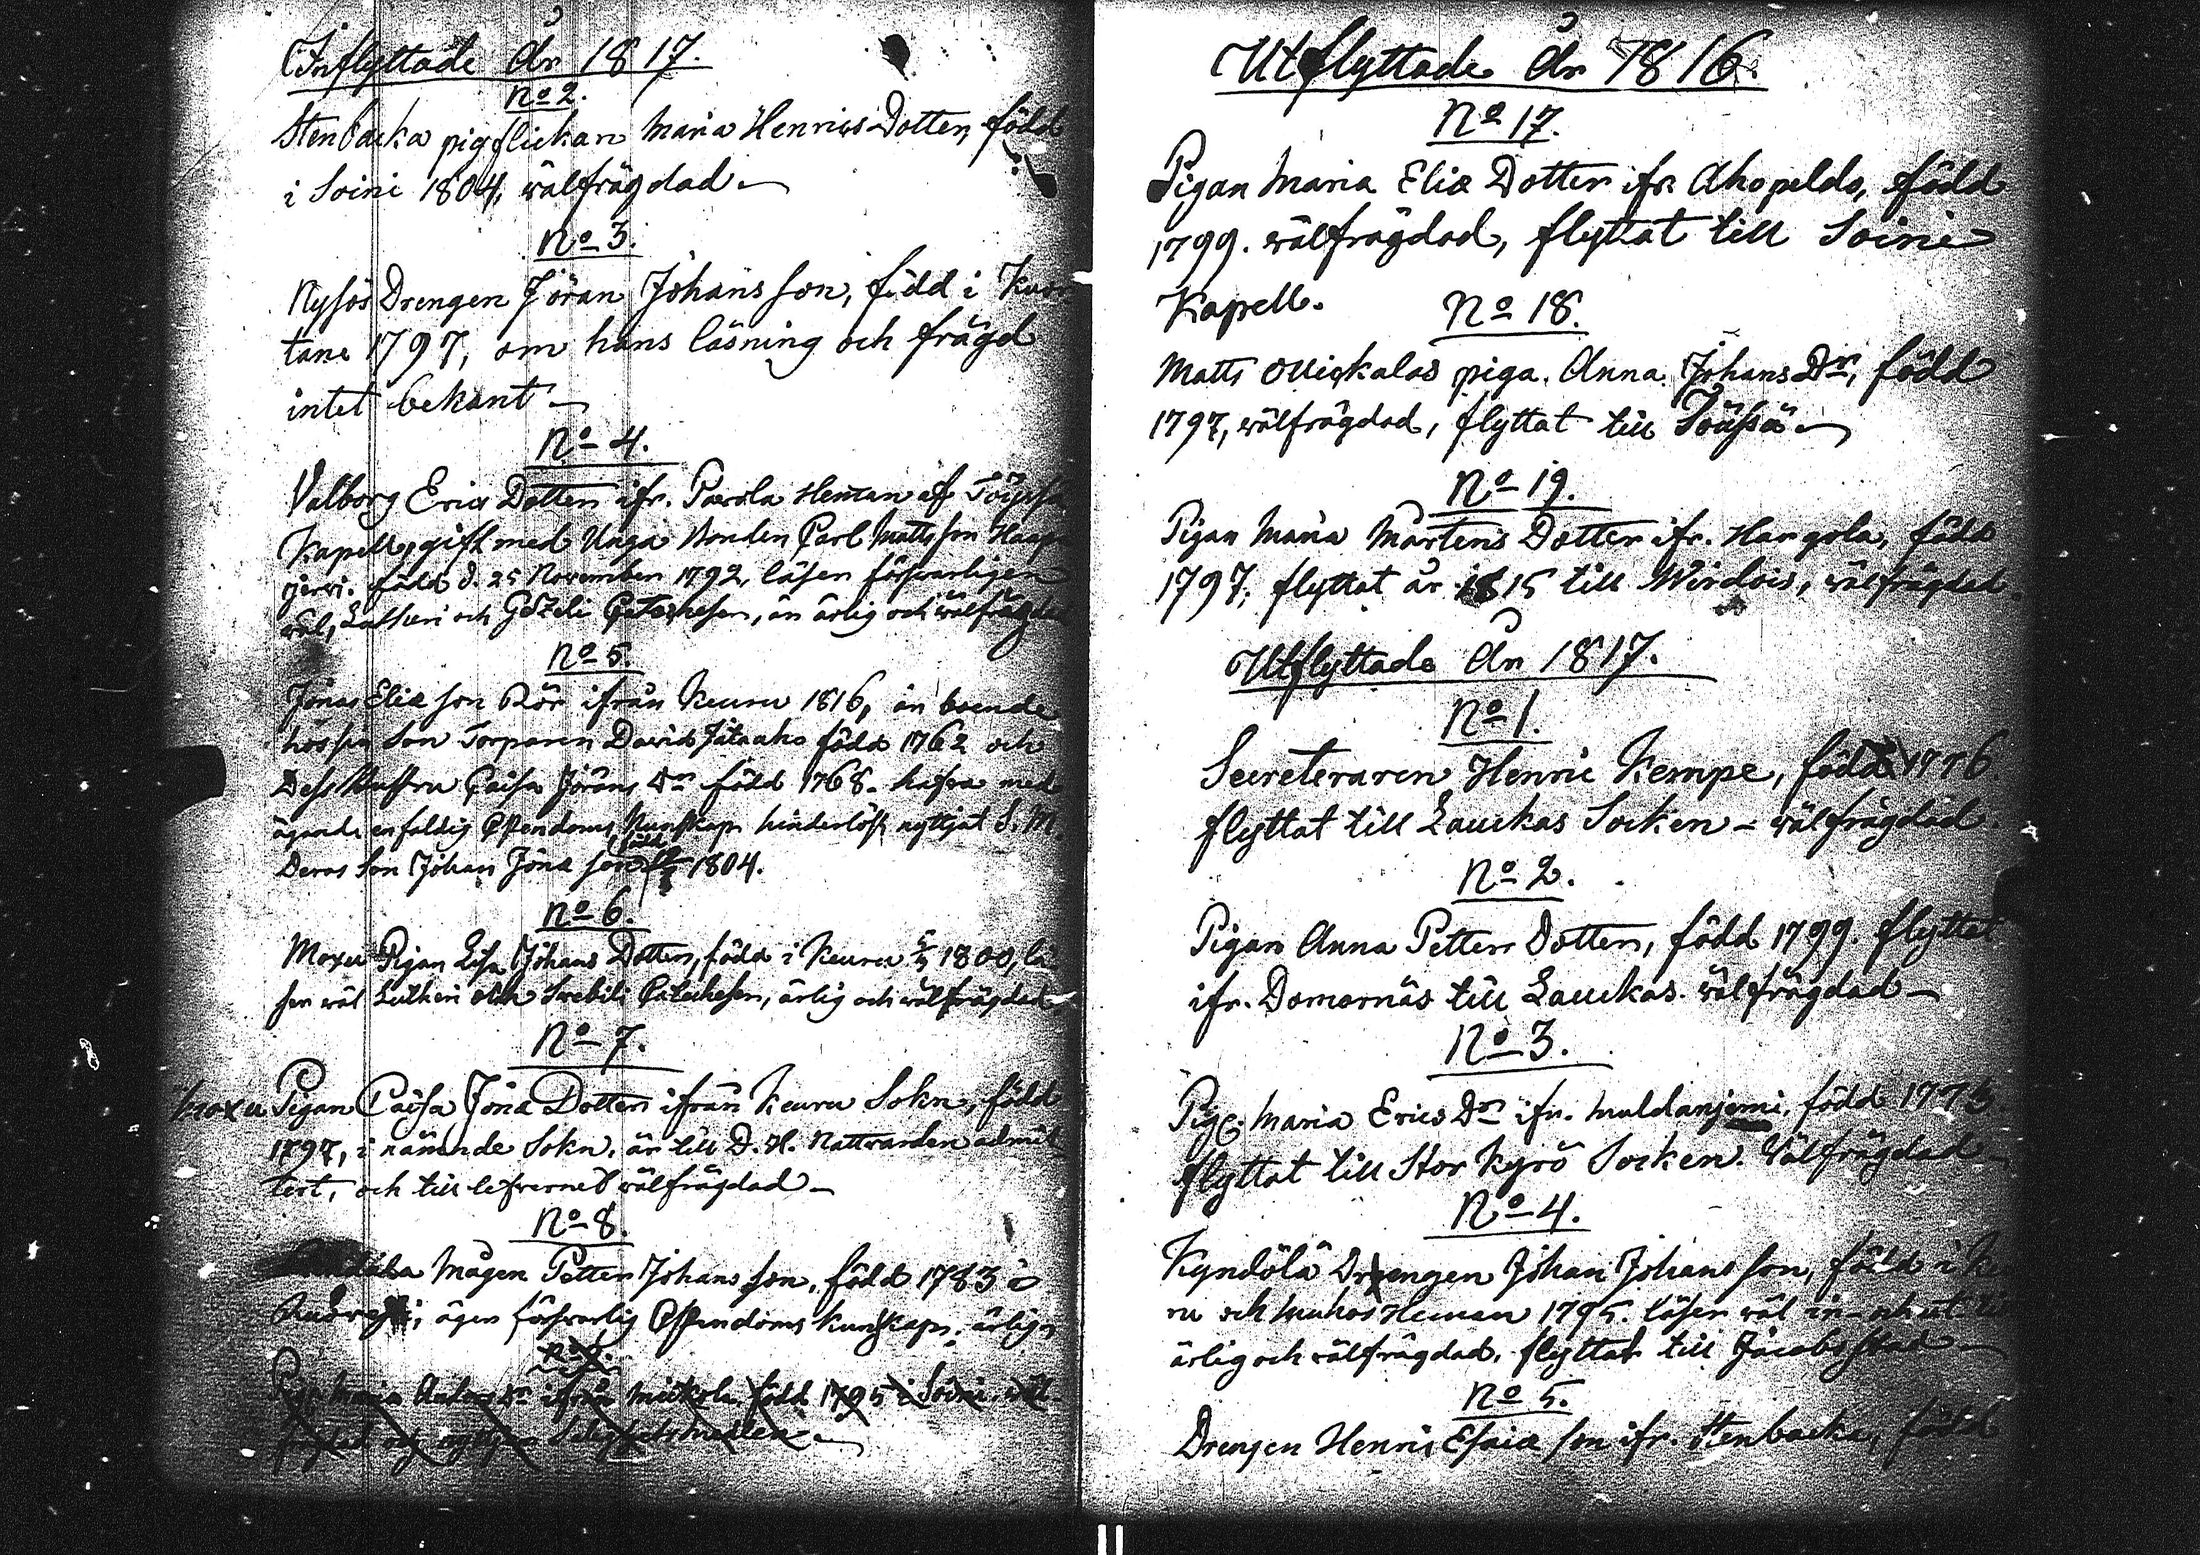 Inflyttade År 1817.
No 2.
Stenbacka pigflickan Maria Henrics Dotter, född
i Soini 1804, wälfrägdad.
No 3.
Nysös Drengen Jöran Johans son, född i Kuor
tane 1797, om hans läsning och frägd
intet bekant
No 4.
Valborg Erics Dotter ifr. Parola Heman af Töysä
Kapell, gift med Unga Bonden Carl Matts son Haapa
jerwi. född d. 25 November 1792, läser försvarligen
wäl, Lutheri och Gezeli Catechesen, än ärlig och wälfrägdad
No 5.
Jonas Eliæ son Rör ifrån Keuru 1816, än boende
hos sin Son Torparen David född 1762 och
Dess Hustru Caisa Jörans Dr född 1768. hafva med
ägande enfaldig Chrendoms Kunskap hinderlöst nyttjat S. M.
Deras Son Johan Jona son född 1804.
No 6.
Moxu Pigan Lisa Johans Dotter, född i Keuru 1800, lä
ser wäl Lutheri och Swebilii Catechesen, ärlig och wälfrägdad
No 7.
Moxu Pigan Caisa Jona Dotter ifrån Keuru Sokn, född
1797, i nämnde Sokn, är till D. H. Nattvarden admit
tert, och till lefvernet wälfrägdad
No 8.
Mågen Petter Johans son, född 1783 i
äger försvarlig Chrendoms kunskap, ärlig
Maria Dr ifrån född 1795 i Soini, wäl
frägdad och Salighetsmedlen
Utflyttade År 1816.
No 17.
Pigan Maria Eliæ Dotter ifr. Ahopelds, född
1799. wälfrägdad, flyttat till Soini
Kapell.
No 18.
Matts Ollickalas piga. Anna Johans Dr, född
1797, wälfrägdad, flyttat till Töüsä
No 19.
Pigan Maria Mårtens Dotter ifr. Hangola, född
1797, flyttat år 1815 till Wirdois, wälfrägdad.
Utflyttade År 1817.
No 1.
Secreteraren Henric Kempe, född 1776
flyttat till Lauckas Socken - wälfrägdad.
No 2.
Pigan Anna Petters Dotter, född 1799. flyttat
ifr. Domarnäs till Lauckas. wälfrägdad
No 3.
Pig. Maria Erics Dr ifr. Muldanjemi, född 1775.
flyttat till Stor Kyrö Socken. Wälfrägdad
No 4.
Kyndölä Drengen Johan Johans son, född i K
ru och Muhos Heman 1795. läser wäl in- och ut
ärlig och wälfrägdad, flyttat till Jacobsstad
No 5.
Drengen Henric Esaiæ son ifr. Stenbacka, född